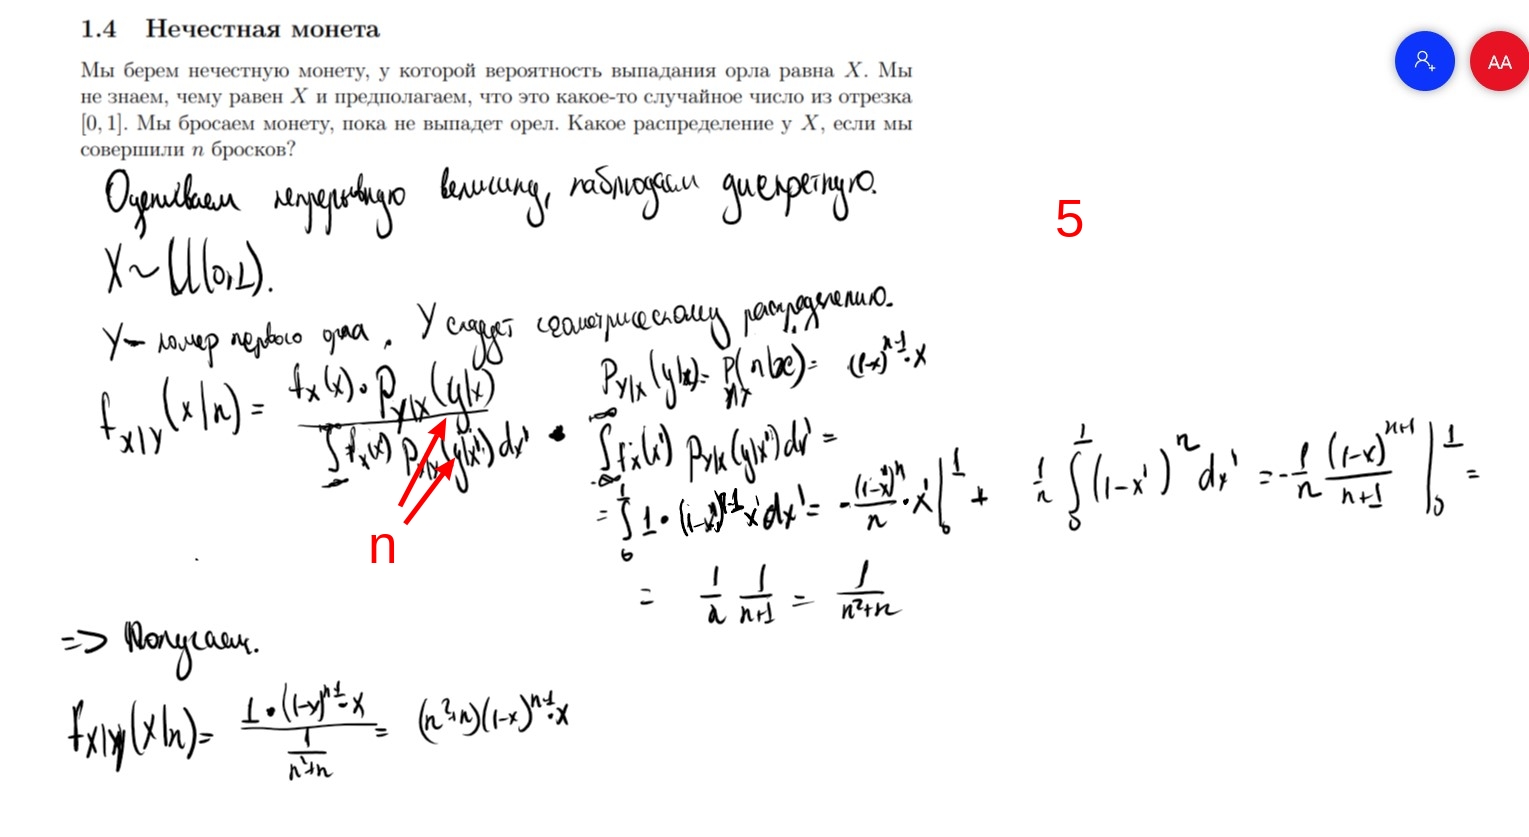 1.4 Нечестная монета
AA
Мы берем нечестную монету, у которой вероятность выпадания орла равна X. Мы
не знаем, чему равен X и предполагаем, что это какое-то случайное число из отрезка
[0, 1]. Мы бросаем монету, пока не выпадет орел. Какое распределение у X, если мы
совершили n бросков?
Оцениваем непрерывную величину, наблюдаем дискретную.
5
X ~ U(0,1).
Y — номер первого орла. Y следует геометрическому распределению.
f_{X|Y}(x|n) = \frac{f_X(x) · P_{Y|X}(y|x)}{∫_{-∞}^{∞} f_X(x') P_{Y|X}(y|x') dx'}
P_{Y|X}(y|x) = P(n|x) = (1-x)^{n-1} · x
∫_{-∞}^{∞} f_X(x') P_{Y|X}(y|x') dx' =
= ∫_0^1 1 · (1-x')^{n-1} x' dx' = -\frac{(1-x')^n}{n} · x' |_0^1 + \frac{1}{n} ∫_0^1 (1-x')^n dx' = -\frac{1}{n} \frac{(1-x)^{n+1}}{n+1} |_0^1 =
n
= \frac{1}{n} \frac{1}{n+1} = \frac{1}{n²+n}
=> Получаем.
f_{X|Y}(x|n) = \frac{1 · (1-x)^{n-1} · x}{\frac{1}{n²+n}} = (n²+n)(1-x)^{n-1} · x